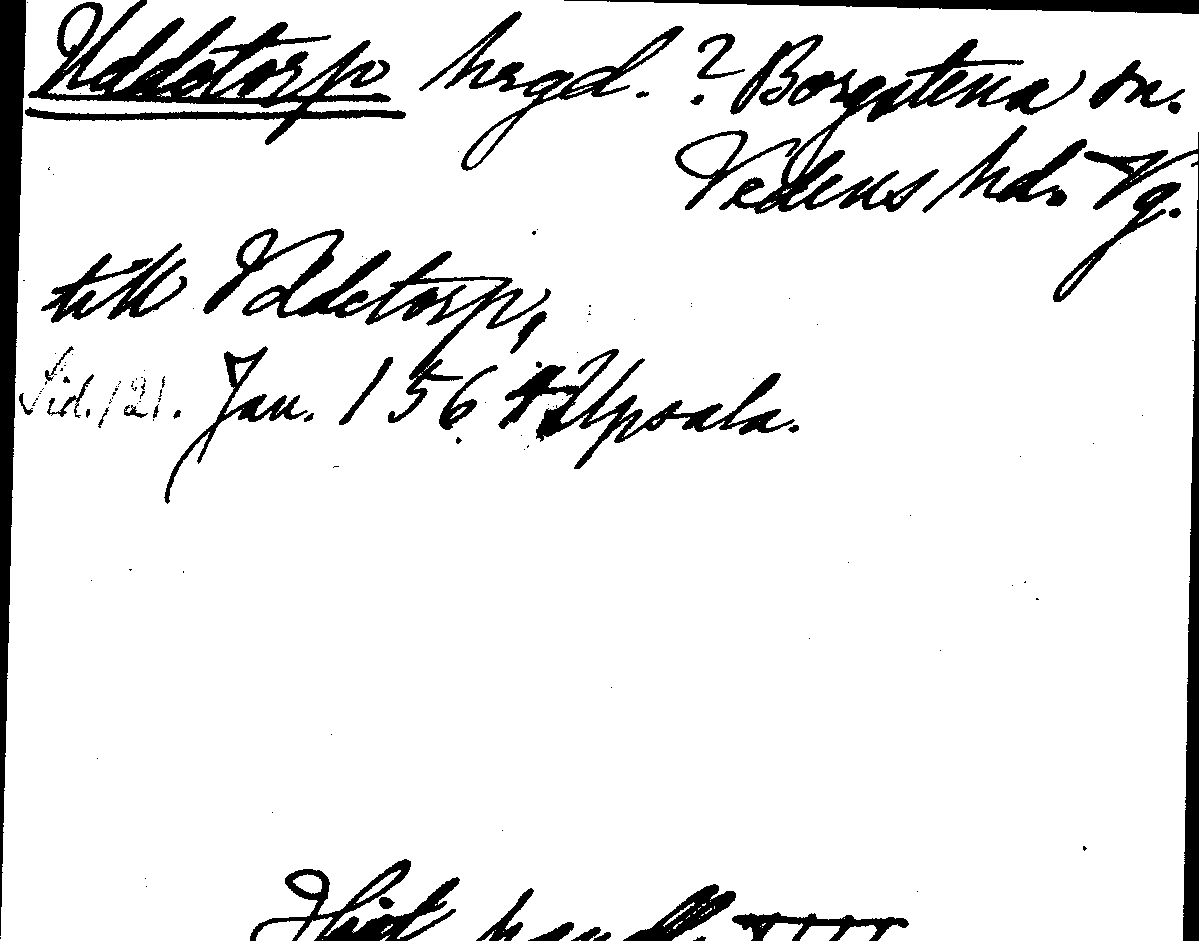 Uddetorp hrgd. ? Borgstena sn.
Vedens hd. Vg.
till Vddetorp,
Sid. 121. Jan. 1564 Upsala.
Hist. handl.